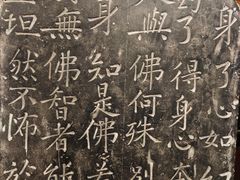 身了心如
了得身心本
與佛何殊別
身知是佛若
無佛智者能
坦然不怖於